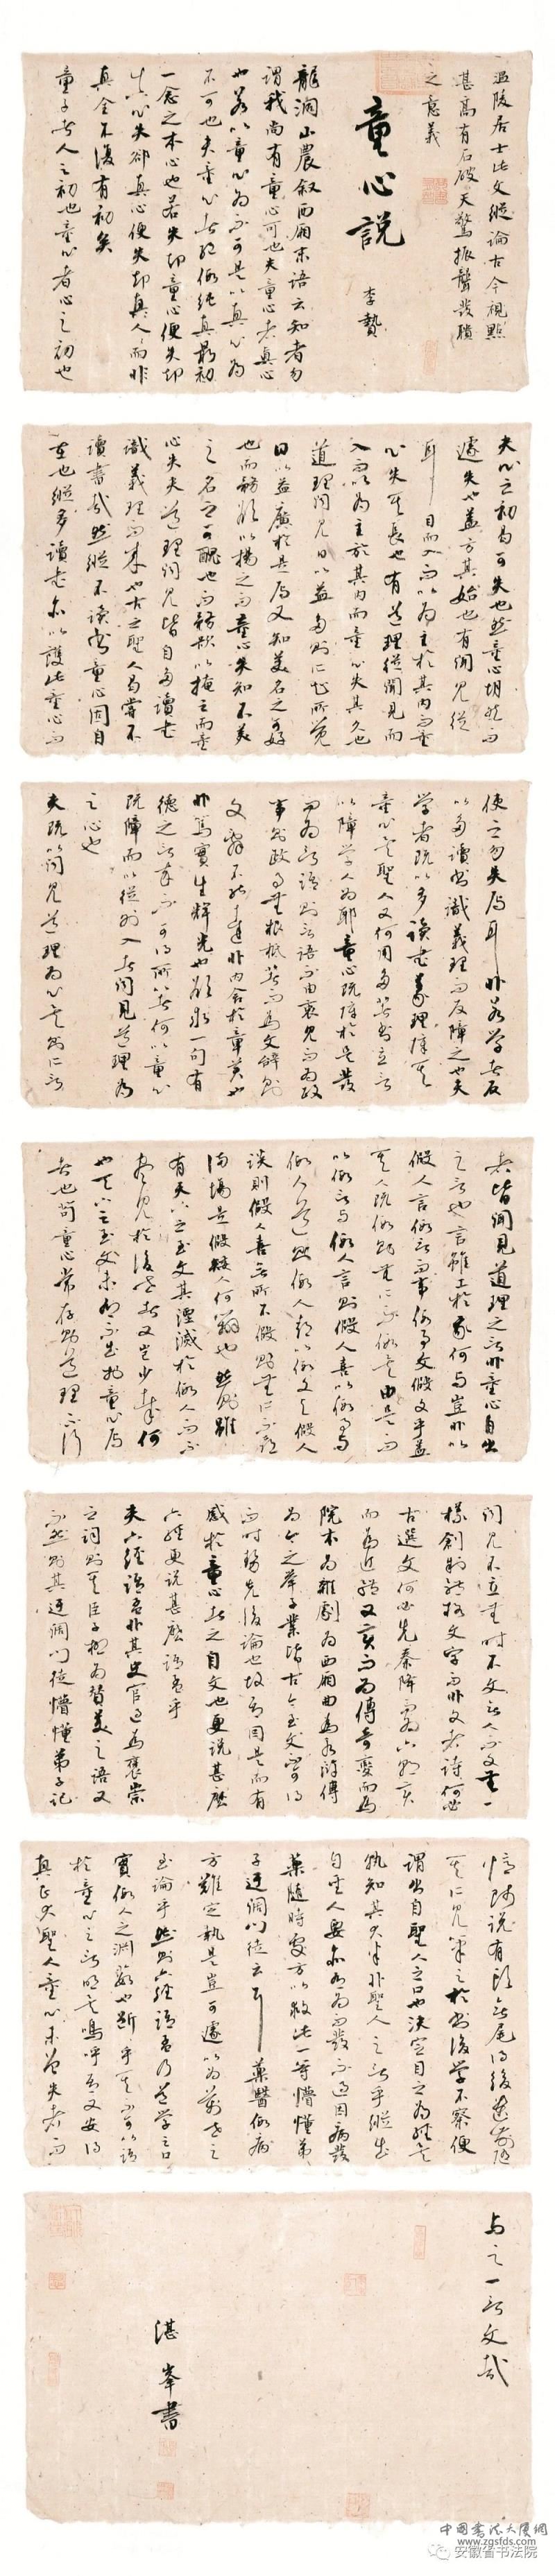 温陵居士此文纵论古今视點
甚高有石破天驚振聾發聵
之意義
童心説
李贄
龍洞山農叙西廂末語云知者勿
謂我尚有童心可也夫童心者真心
也若以童心為不可是以真心為
不可也夫童心者絕假純真最初
一念之本心也若失却童心便失却
真心失却真心便失却真人人而非
真全不復有初矣
童子者人之初也童心者心之初也
夫心之初曷可失也然童心胡然而
遽失也蓋方其始也有聞見從
耳目而入而以為主於其内而童
心失其長也有道理從聞見而
入而以為主於其内而童心失其久也
道理聞見日以益多則所知所覺
日以益廣於是焉又知美名之可好
也而務欲以揚之而童心失知不美
之名之可醜也而務欲以掩之而童
心失夫道理聞見皆自多讀書
識義理而来也古之聖人曷嘗不
讀書哉然縱不讀書童心固自
在也縱多讀書亦以護此童心而
使之勿失焉耳非若學者反
以多讀書識義理而反障之也夫
學者既以多讀書義理障其
童心矣聖人又何用多著書立言
以障學人為耶童心既障於是發
而為言語則言語不由衷見而為政
事則政事無根柢著而為文辭則
文辭不能達非内含於章美也
非篤實生輝光也欲求一句有
德之言卒不可得所以者何以童心
既障而以從外入者聞見道理為
之心也
夫既以聞見道理為心矣則所言
者皆聞見道理之言非童心自出
之言也言雖工於我何與豈非以
假人言假言而事假事文假文乎蓋
其人既假則無所不假矣由是而
以假言與假人言則假人喜以假事與
假人道則假人喜以假文與假人
談則假人喜無所不假則無所不喜
滿場是假矮人何辯也然則雖
有天下之至文其湮滅於假人而不
盡見於後世者又豈少哉何
也天下之至文未有不出於童心焉
者也苟童心常存則道理不行
聞見不立無時不文無人不文無一
樣創制體格文字而非文者詩何必
古選文何必先秦降而為六朝變
而為近體又變而為傳奇變而為
院本為雜劇為西廂曲為水滸傳
為今之舉子業皆古今至文不可得
而時勢先後論也故吾因是而有
感於童心者之自文也更說甚麼
六經更说甚麼語孟乎
夫六經語孟非其史官過為褒崇
之詞則其臣子極為贊美之語又
不然則其迂闊門徒懵懂弟子記
憶師说有頭無尾得後遺前隨
其所見筆之於書後學不察便
謂出自聖人之口也決定目之為經矣
孰知其大半非聖人之言乎縱出
自聖人要亦有為而發不過因病發
藥隨時處方以救此一等懵懂弟
子迂闊門徒云耳藥醫假病
方難定執是豈可遽以為萬世之
至論乎然則六經語孟乃道學之口
實假人之淵藪也斷乎其不可以語
於童心之言明矣嗚呼吾又安得
真正大聖人童心未曾失者而
與之一言文哉
湛峯書
中国书法大厦网
www.zgsfds.com
安徽省书法院